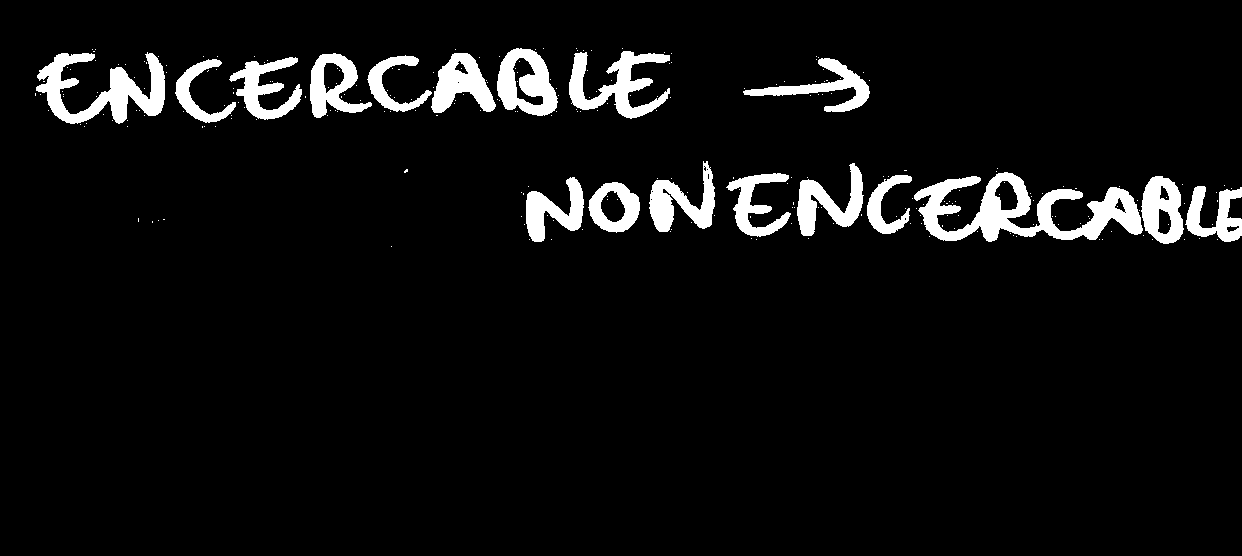 ENCERCABLE →
NONENCERCABLE